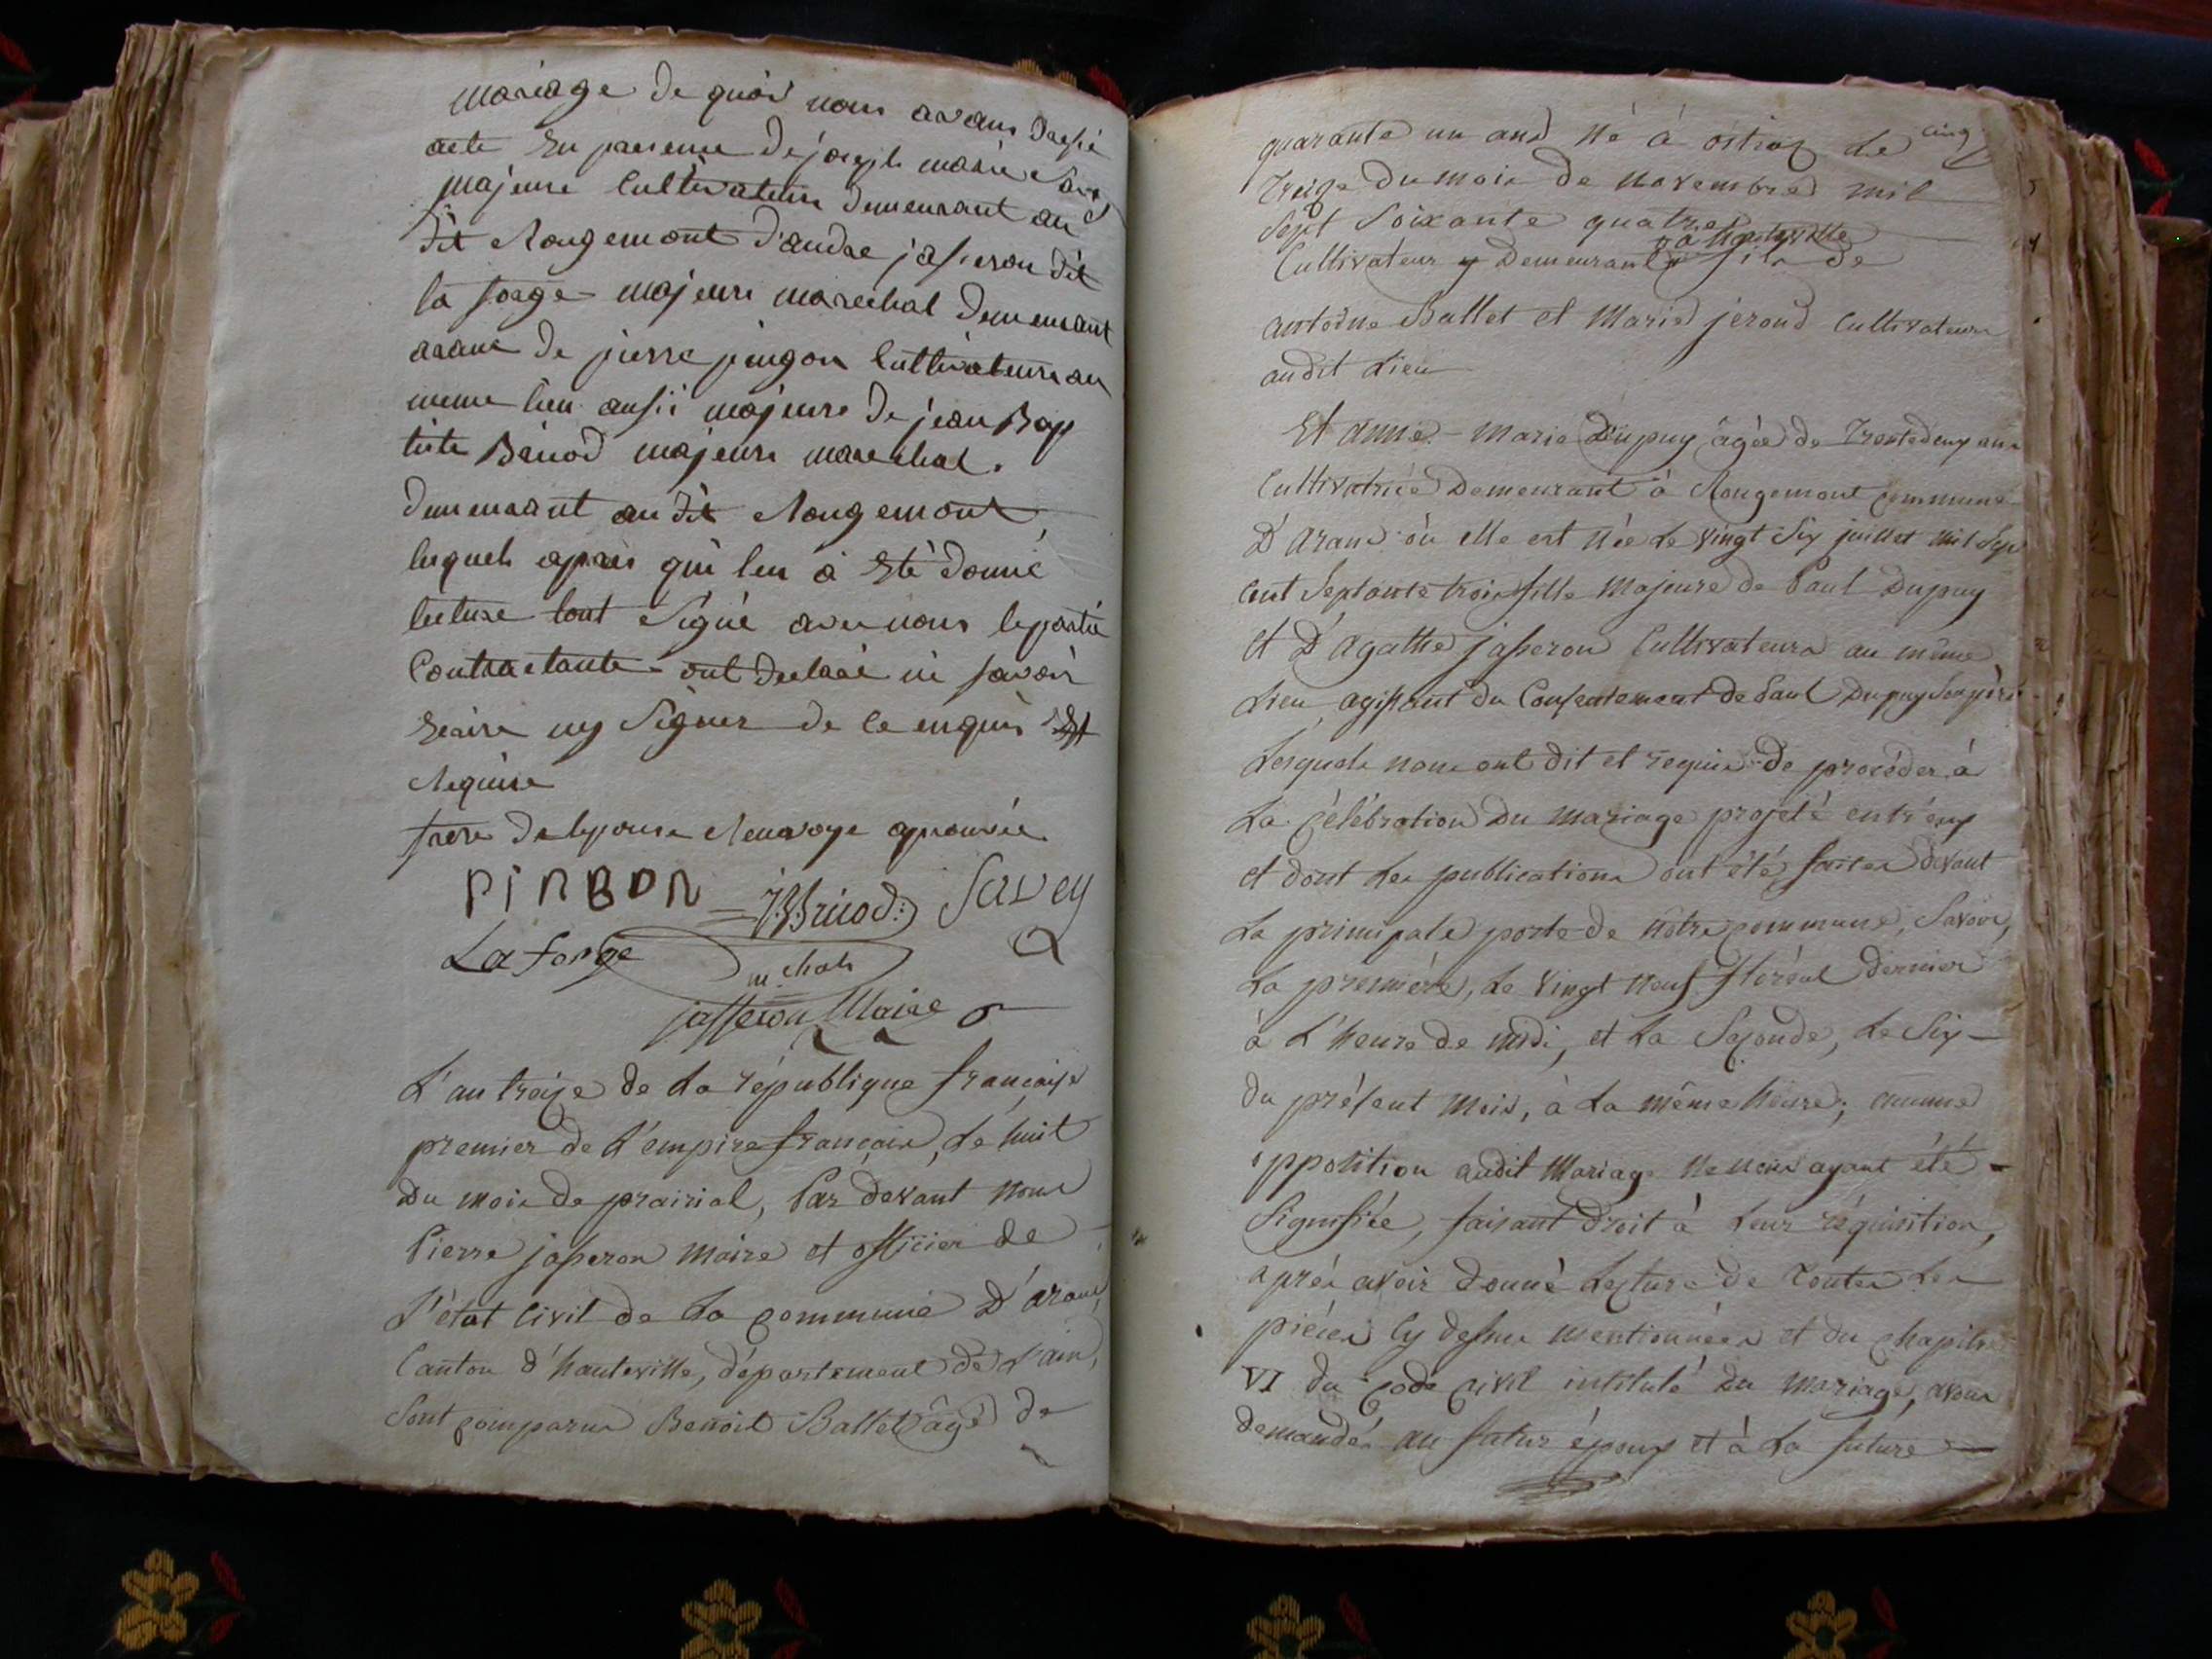 mariage de quoi nous avons dressé
acte En presence de joseph marie Savey
majeure Cultivateur demeurant au
dit Rougemont d'andre jasseron dit
la forge majeure marechal demeurant
arane de pierre pingon Cultivateure au
meme lieu aussi majeure de jean Bap
tiste Bénod majeure marechal.
demeurant au dit Rougemont
lesquels apres qui leu a Eté donné
lecture tout Signé avec nous le partie
Contractante ont declaré ni savoir
Ecrire ny Signer de ce enquis
Requise
frere de lepouse Renvoye aprouvée
PINGON
Savey
La forge
mchals
jasseron Maire
L'an treize de La république française
premier de L'empire français, Le huit
Du mois de prairial, Par devant nous
Pierre jasseron Maire et officier de
L'état Civil de La commune D'arane,
Canton d'hauteville, département de L'ain,
Sont comparus Benoit Ballet âgé de
quarante un ans Né à ostiaz Le cinq
Treize Du mois de novembre mil
Sept Soixante quatre
Cultivateur y Demeurant à hauteville fils de
antoine Ballet et Marie jerond Cultivateurs
audit Lieu
Et anne-marie Dupuy âgée de Trentedeux ans
Cultivatrice Demeurant à Rougemont commune
D'arane où elle est Née Le vingt Six juillet mil Sep
Cent Septante trois fille Majeure de Paul Dupuy
Et D'agathe jasseron Cultivateurs au même
Lieu, agissant du Consentement de Paul Dupuy Son père
Lesquels nous ont dit et requis de procéder à
La Célébration Du Mariage projeté entr'eux
et dont Les publications ont été faites devant
La principale porte de Nôtre commune, Savoir,
La première, Le Vingt Neuf floréal dernier
à L'heure de midi, et La Seconde, Le Six
du présent Mois, à La même heure; aucune
opposition audit Mariage Ne nous ayant été
Signifiée, faisant droit à Leur réquisition,
après avoir donné Lecture de Toutes Les
pièces Cy dessus mentionnées et du chapitre
VI du code civil intitulé Du Mariage, avons
demandés au futur époux et à La future